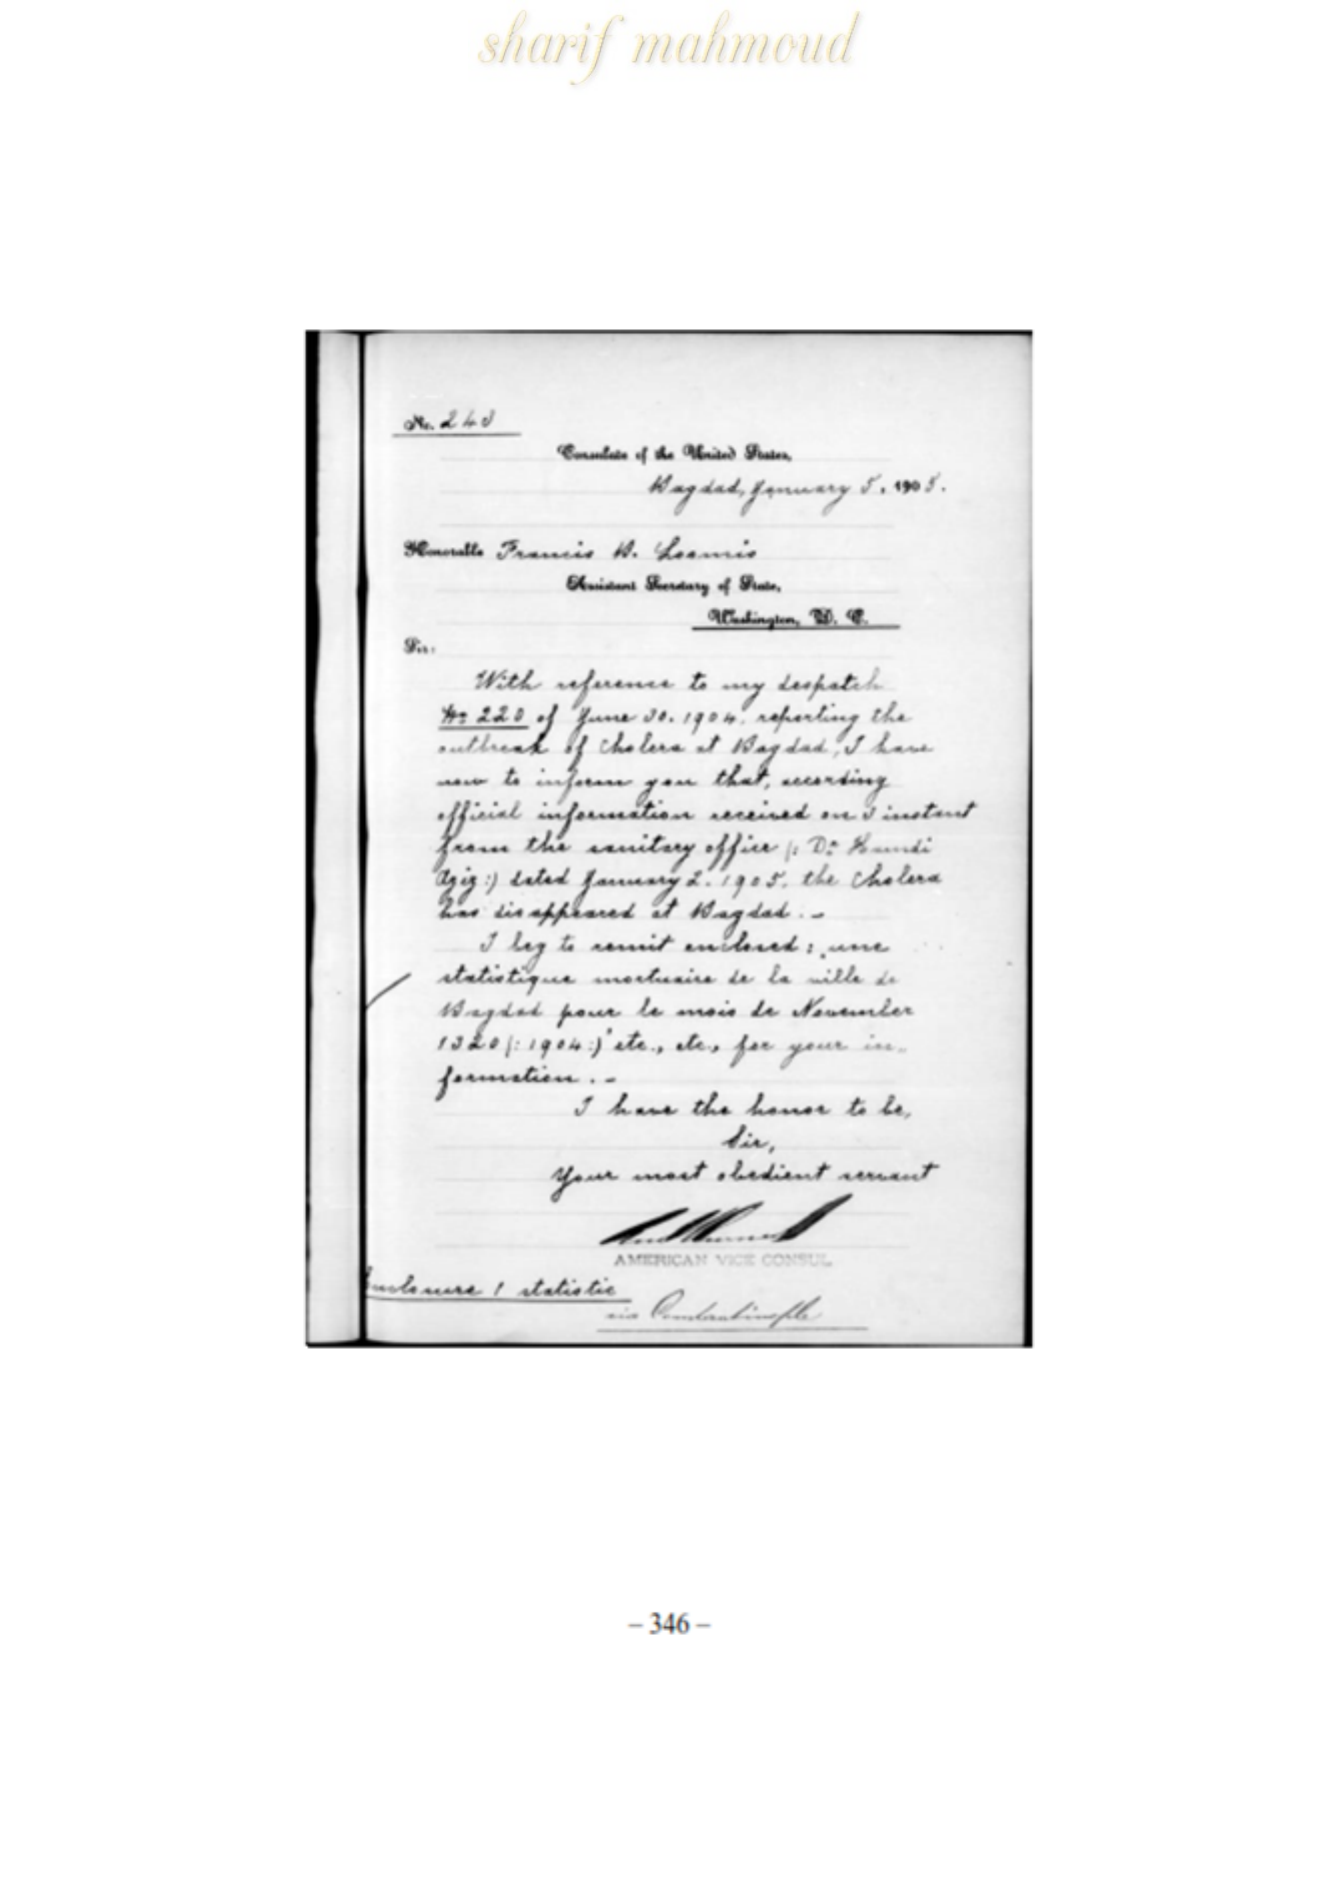 sharif mahmoud
No. 243
Consulate of the United States,
Bagdad, January 5, 1905.
Honorable Francis B. Loomis
Assistant Secretary of State,
Washington, D. C.
Sir:
With reference to my despatch
No 220 of June 30. 1904, reporting the
outbreak of Cholera at Bagdad, I have
now to inform you that, according
official information received on 3 instant
from the sanitary office (: Dr. Hamdi
Aziz :) dated January 2. 1905. the Cholera
has disappeared at Bagdad. –
I beg to remit enclosed: „une
statistique mortuaire de la ville de
Bagdad pour le mois de November
1320 (: 1904 :)" etc., etc., for your in-
formation. –
I have the honor to be,
Sir,
Your most obedient servant
AMERICAN VICE CONSUL.
Enclosure 1 statistic
via Constantinople
– 346 –